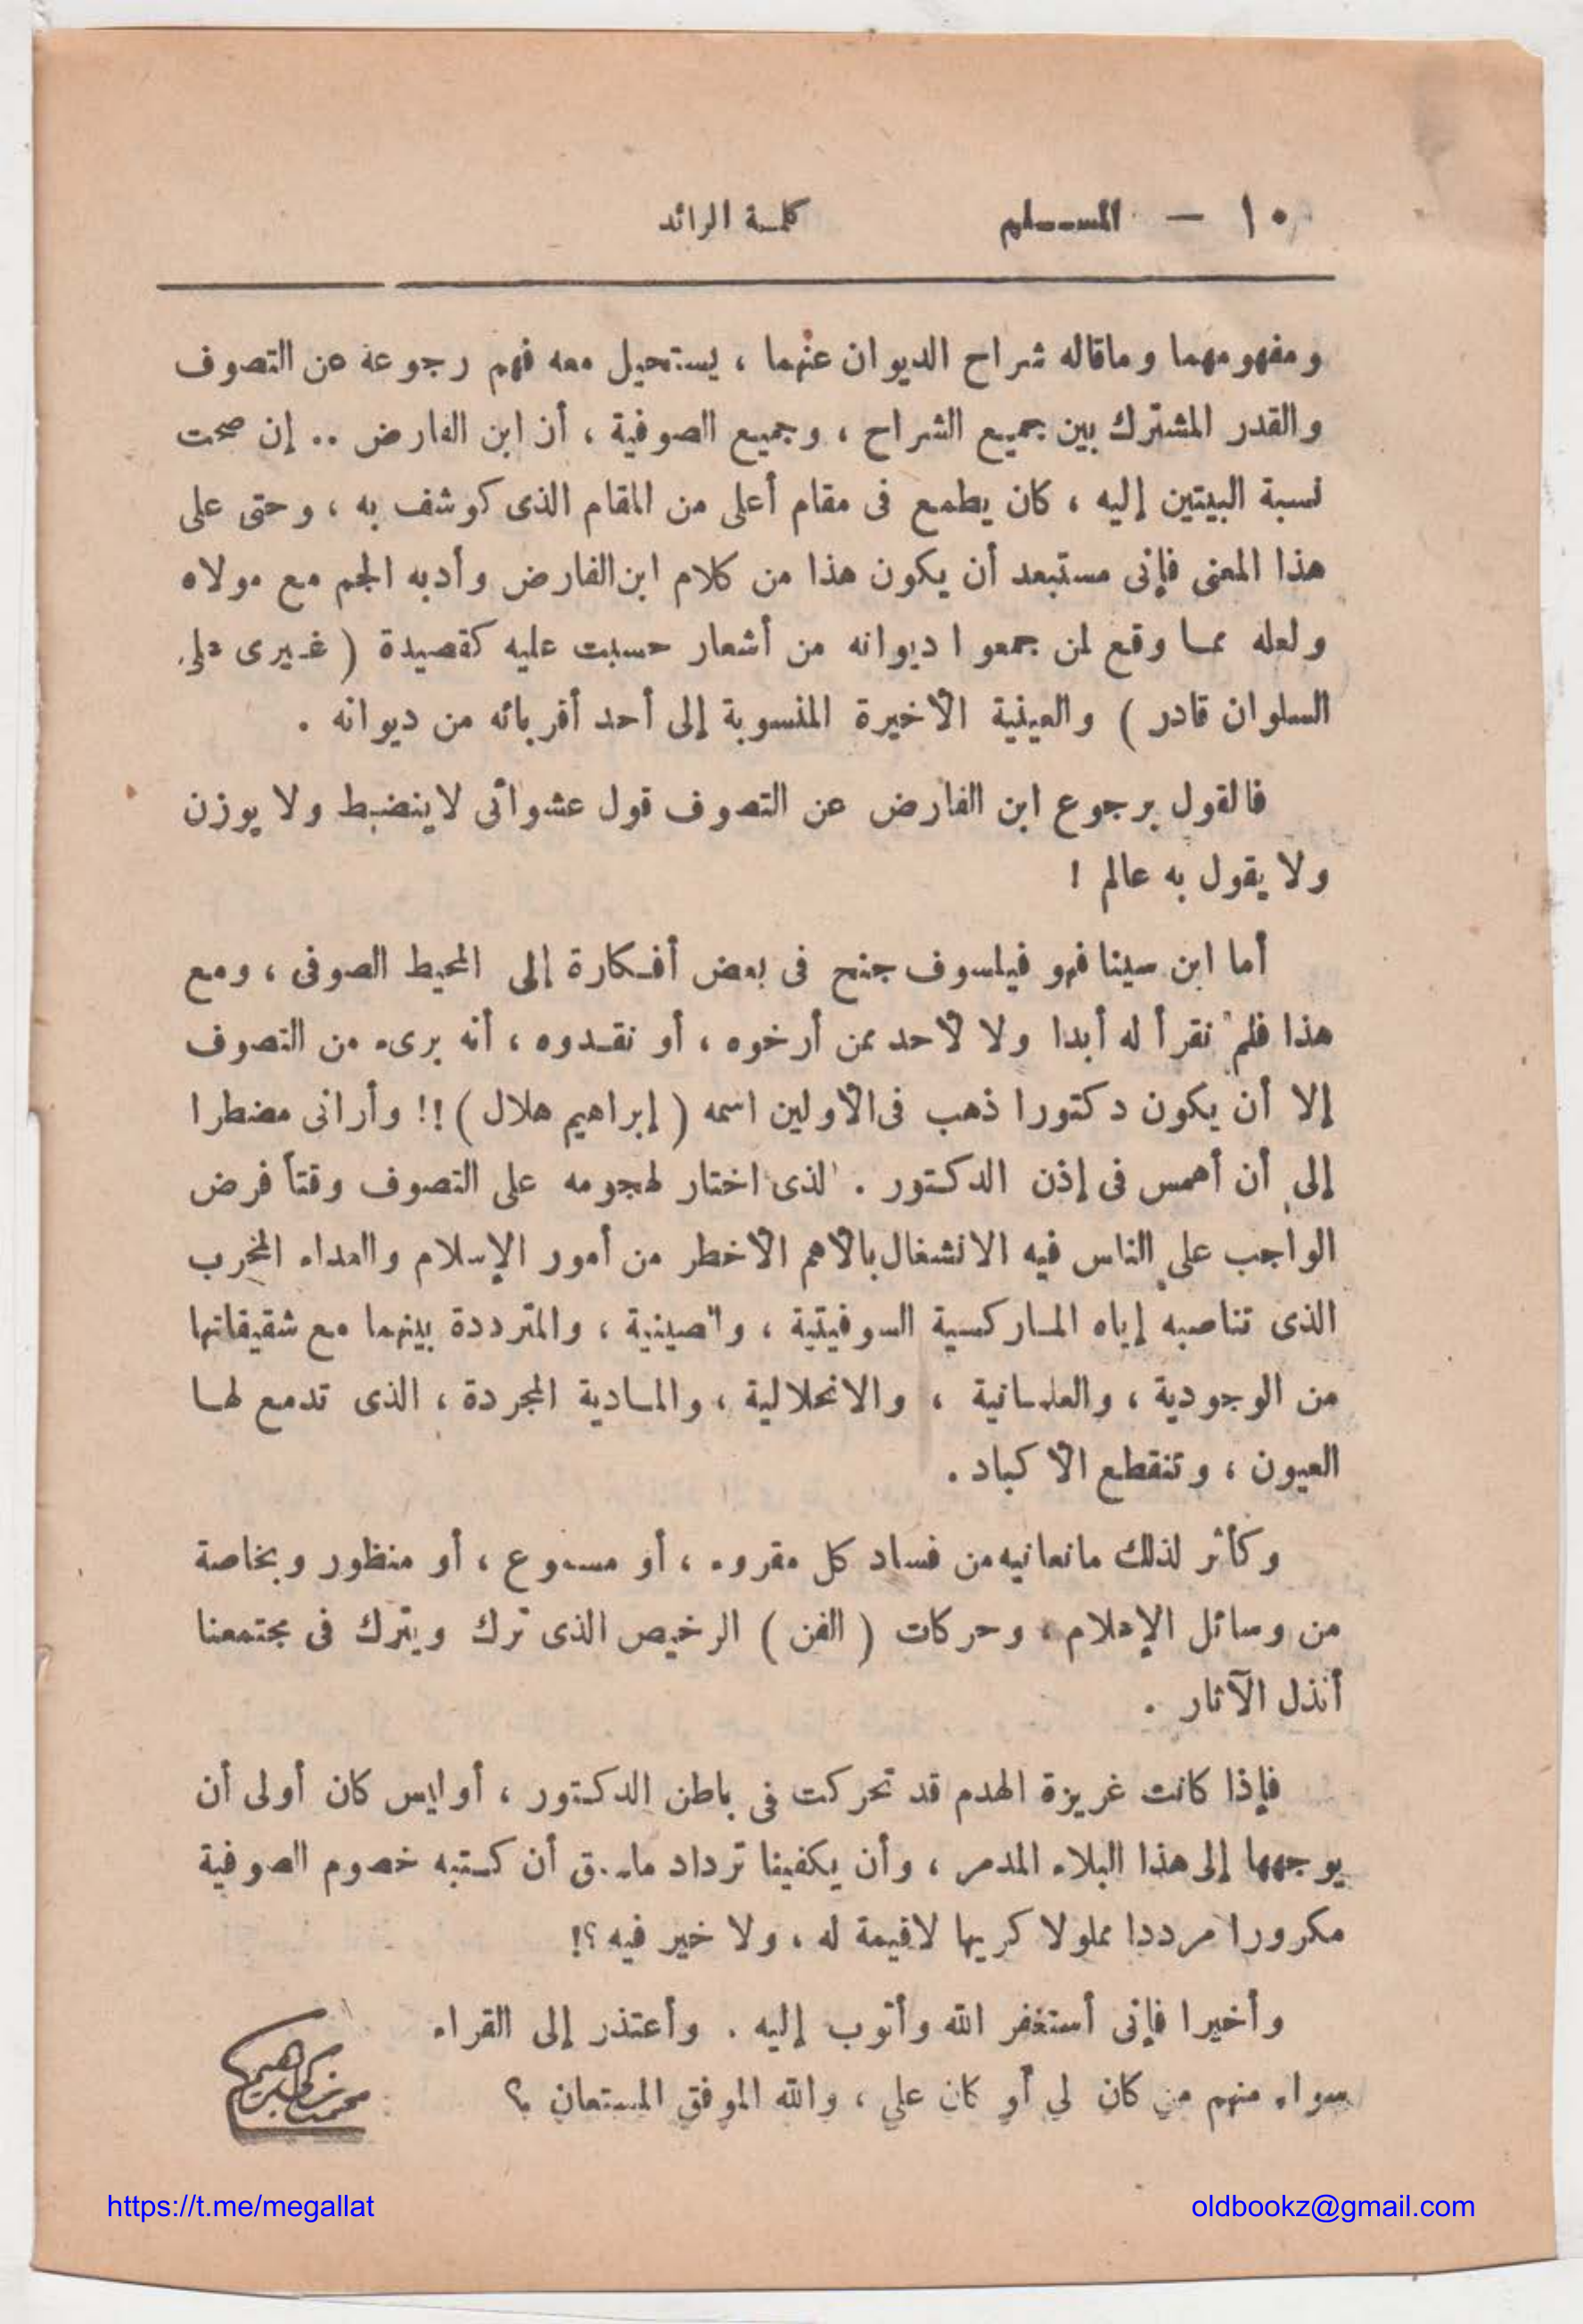 ١٠ — المسلم كلمة الرائد
ومفهومهما وماقاله شراح الديوان عنهما ، يستحيل معه فهم رجوعة عن التصوف
والقدر المشترك بين جميع الشراح ، وجميع الصوفية ، أن ابن الفارض .. إن صحت
نسبة البيتين إليه ، كان يطمع فى مقام أعلى من المقام الذى كوشف به ، وحتى على
هذا المعنى فإنى مستبعد أن يكون هذا من كلام ابن الفارض وأدبه الجم مع مولاه
ولعله مما وقع لمن جمعوا ديوانه من أشعار حسبت عليه كقصيدة ( غيرى على
السلوان قادر ) والعينية الأخيرة المنسوبة إلى أحد أقربائه من ديوانه .
فالقول برجوع ابن الفارض عن التصوف قول عشوائى لاينضبط ولا يوزن
ولا يقول به عالم !
أما ابن سينا فهو فيلسوف جنح فى بعض أفكارة إلى المحيط الصوفى ، ومع
هذا فلم نقرأ له أبدا ولا لأحد ممن أرخوه ، أو نقدوه ، أنه برىء من التصوف
إلا أن يكون دكتورا ذهب فى الأولين اسمه ( إبراهيم هلال ) !! وأرانى مضطرا
إلى أن أهمس فى إذن الدكتور . الذى اختار لهجومه على التصوف وقتاً فرض
الواجب على الناس فيه الانشغال بالأهم الأخطر من أمور الإسلام والعداء المخرب
الذى تناصبه إياه الماركسية السوفيتية ، والصينية ، والمترددة بينهما مع شقيقاتها
من الوجودية ، والعلمانية ، والانحلالية ، والمادية المجردة ، الذى تدمع لها
العيون ، وتنقطع الأكباد .
وكأثر لذلك مانعانيه من فساد كل مقروء ، أو مسموع ، أو منظور وبخاصة
من وسائل الإعلام ، وحركات ( الفن ) الرخيص الذى ترك ويترك فى مجتمعنا
أنذل الآثار .
فإذا كانت غريزة الهدم قد تحركت فى باطن الدكتور ، أوليس كان أولى أن
يوجهها إلى هذا البلاء المدمر ، وأن يكفينا ترداد ماسبق أن كتبه خصوم الصوفية
مكرورا مرددا مملولا كريها لاقيمة له ، ولا خير فيه ؟!
وأخيرا فإنى أستغفر الله وأتوب إليه . وأعتذر إلى القراء
سواء منهم من كان لي أو كان علي ، والله الموفق المستعان ؟
محمد زكى إبراهيم
https://t.me/megallat oldbookz@gmail.com